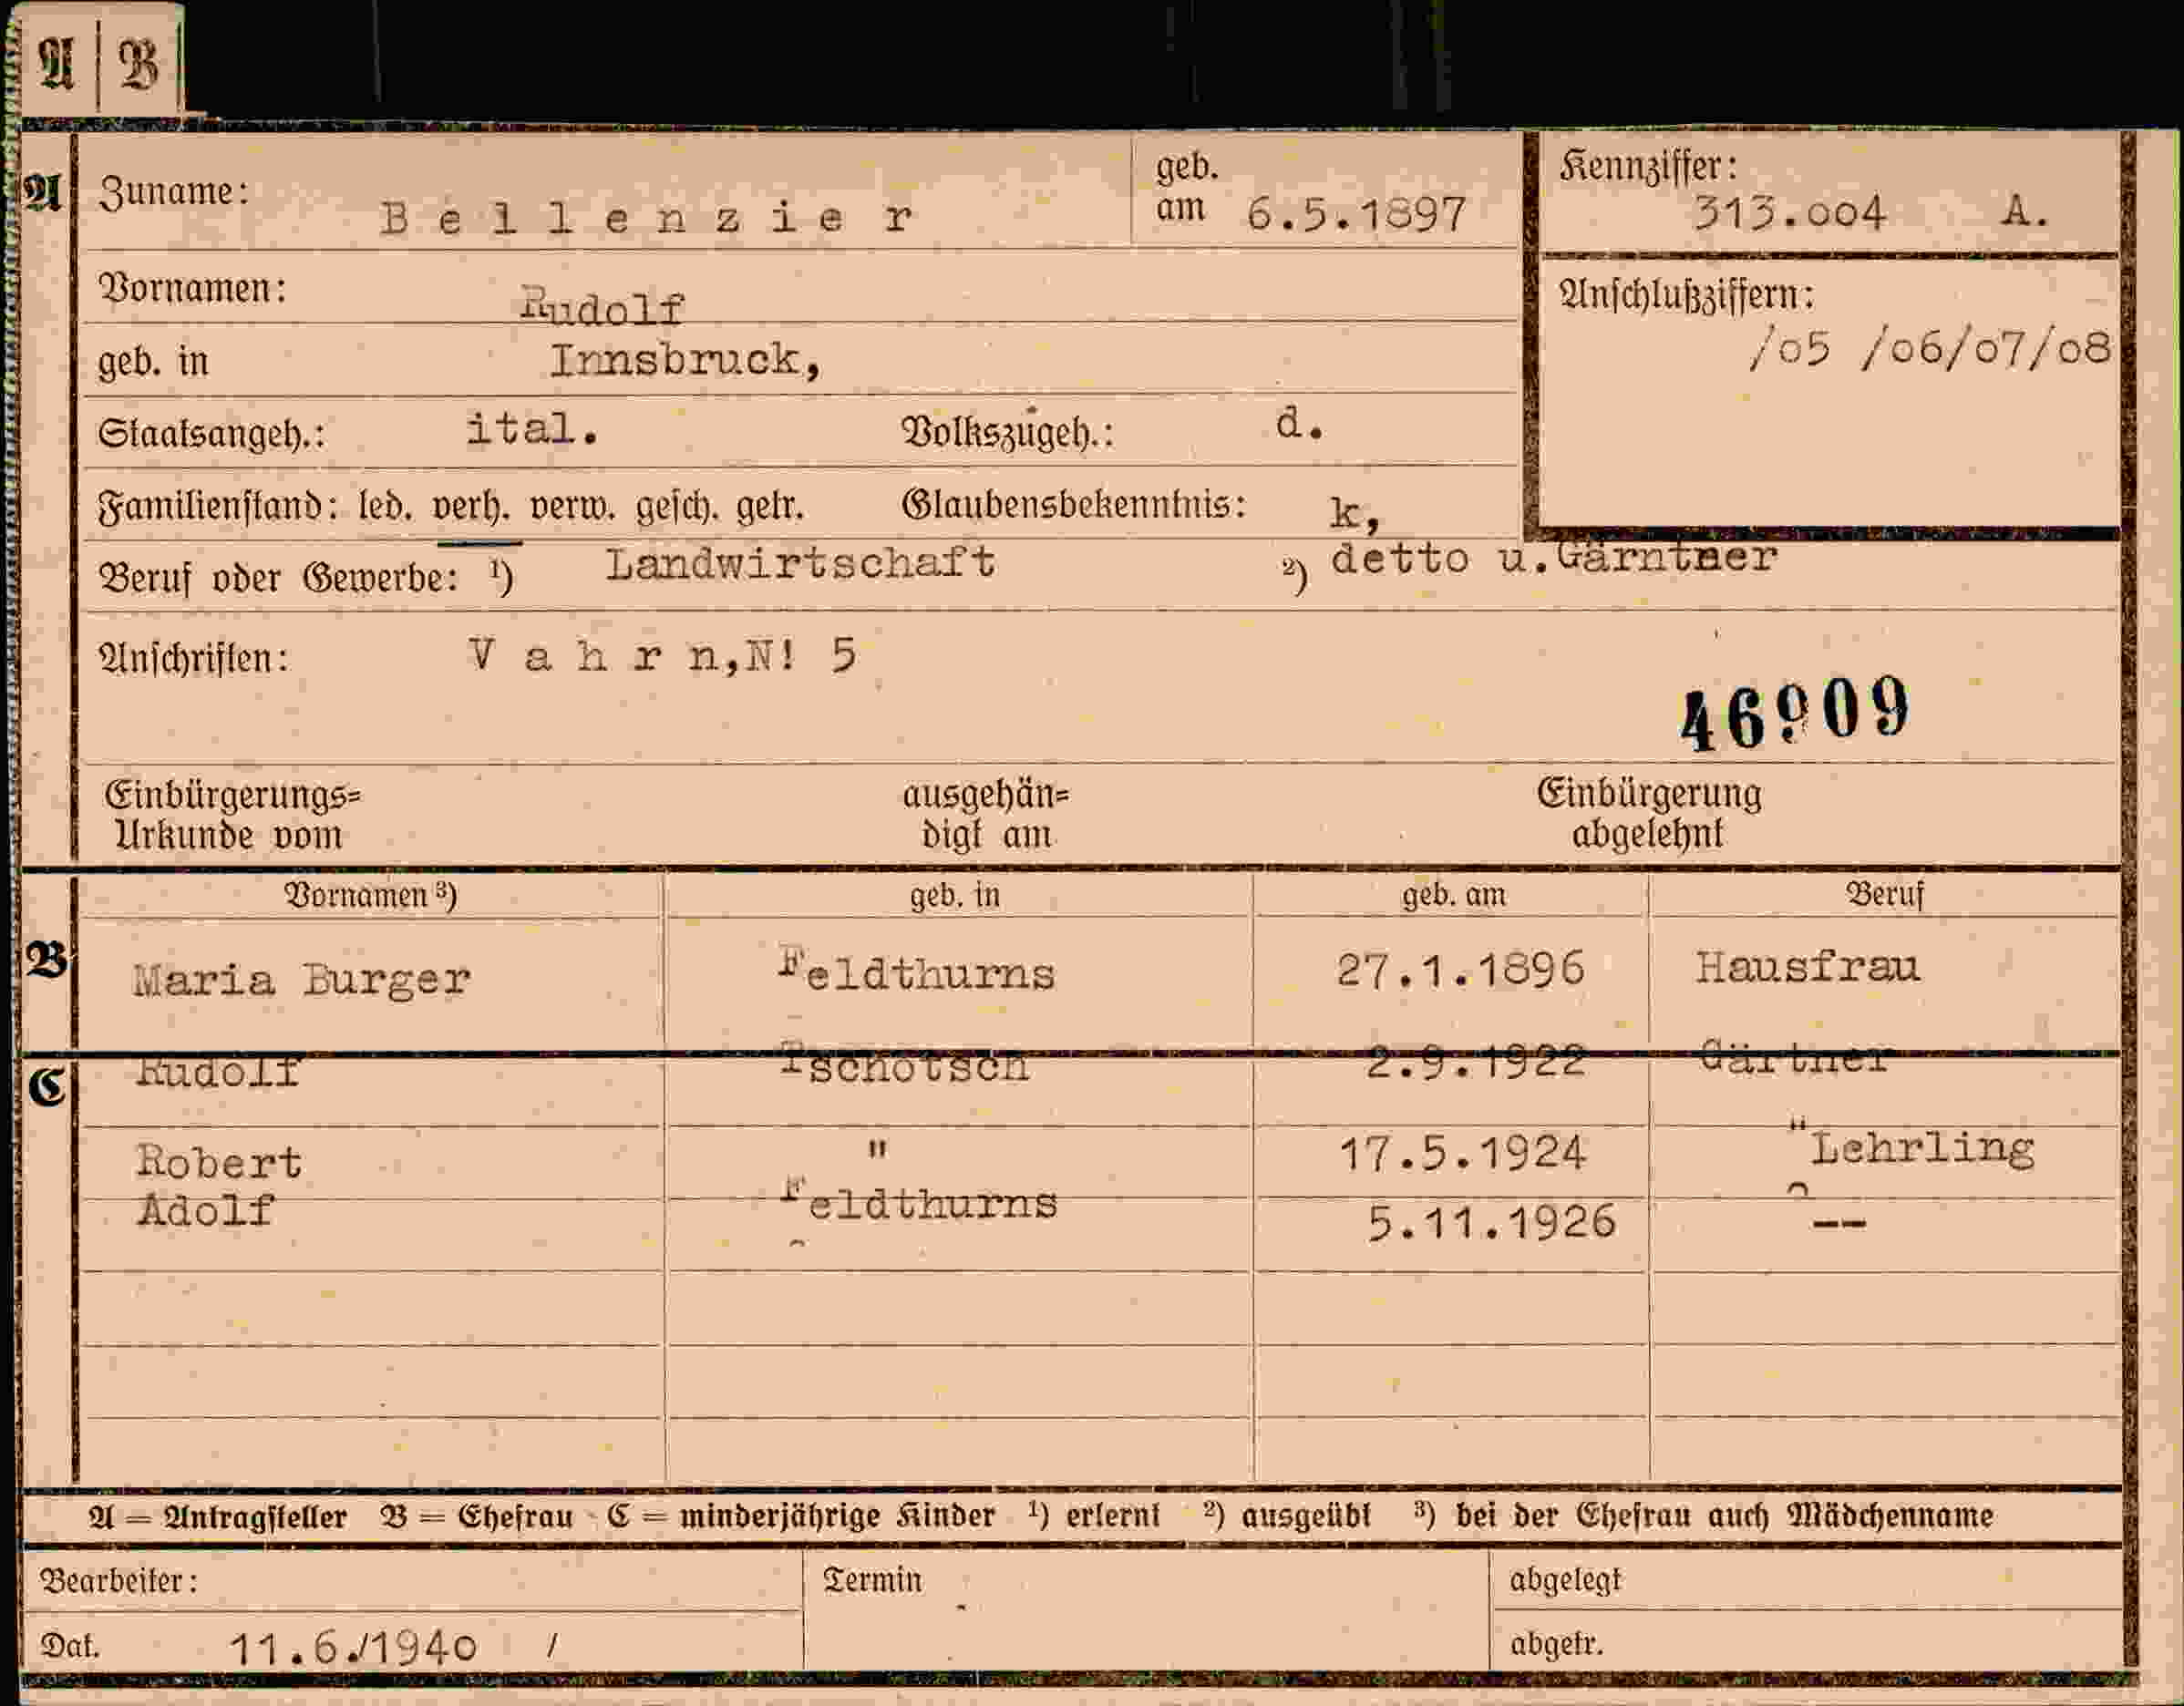 A | B
A Zuname: Bellenzier geb. am 6.5.1897 Kennziffer: 313.oo4 A.
Vornamen: Rudolf Anschlußziffern: /o5 /o6/o7/o8
geb. in Innsbruck,
Staatsangeh.: ital. Volkszugeh.: d.
Familienstand: led. verh. verw. gesch. getr. Glaubensbekenntnis: k,
Beruf oder Gewerbe: ¹) Landwirtschaft ²) detto u.Gärntner
Anschriften: Vahrn,N! 5
46909
Einbürgerungs= ausgehän= Einbürgerung
Urkunde vom digt am abgelehnt
Vornamen ³) geb. in geb. am Beruf
B Maria Burger Feldthurns 27.1.1896 Hausfrau
C Rudolf Tschötsch 2.9.1922 Gärtner
Robert " 17.5.1924 "Lehrling
Adolf Feldthurns 5.11.1926 --
A = Antragsteller B = Ehefrau C = minderjährige Kinder ¹) erlernt ²) ausgeübt ³) bei der Ehefrau auch Mädchenname
Bearbeiter: Termin abgelegt
Dat. 11.6./194o / abgetr.